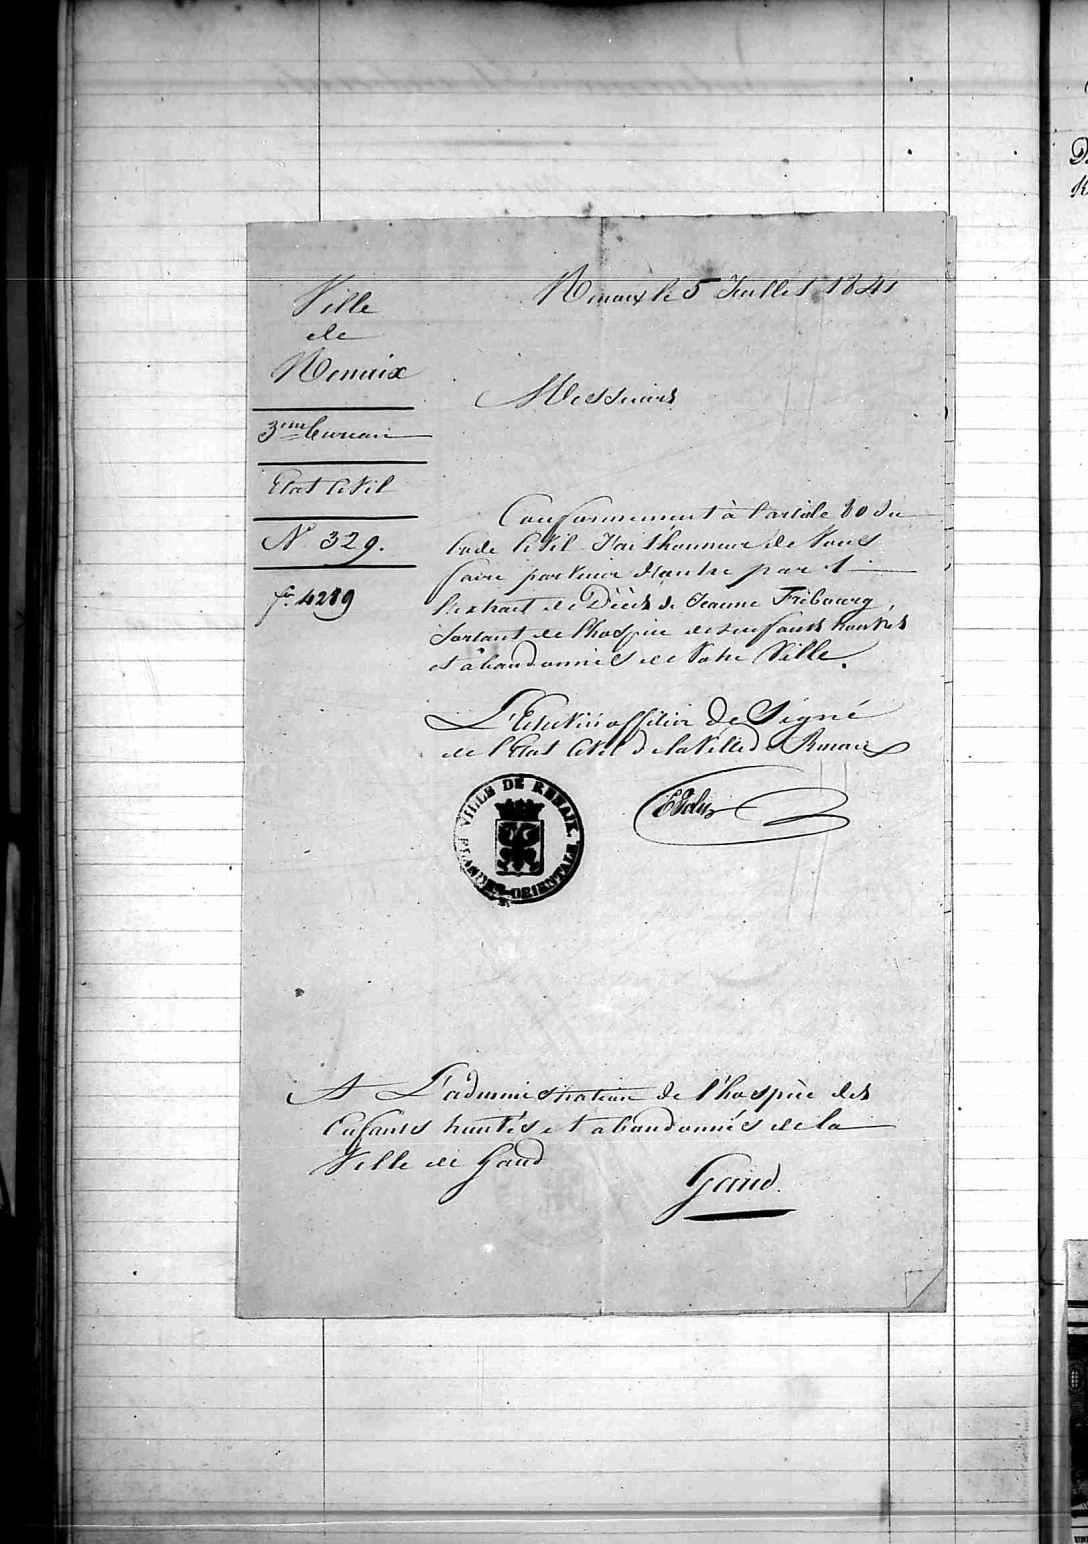 Ville
de
Renaix
3eme bureau
Etat Civil
N° 329.
fo. 4289
Renaix le 5 Juillet 1841
Messieurs
Conformement à l'article 80 du
Code Civil J'ai l'honneur de Vous
faire parvenir d'autre part
l'extrait de Décès de Jeanne Fribourg
Sortant de l'hospice des enfants trouvés
et abandonnés de Votre Ville.
L'Echevin officier De Signé
de l'Etat Civil de la Ville de Renaix
VILLE DE RENAIX.
FLANDRE-ORIENTALE
A L'administration de l'hospice des
Enfants trouvés et abandonnés de la
Ville de Gand
Gand.